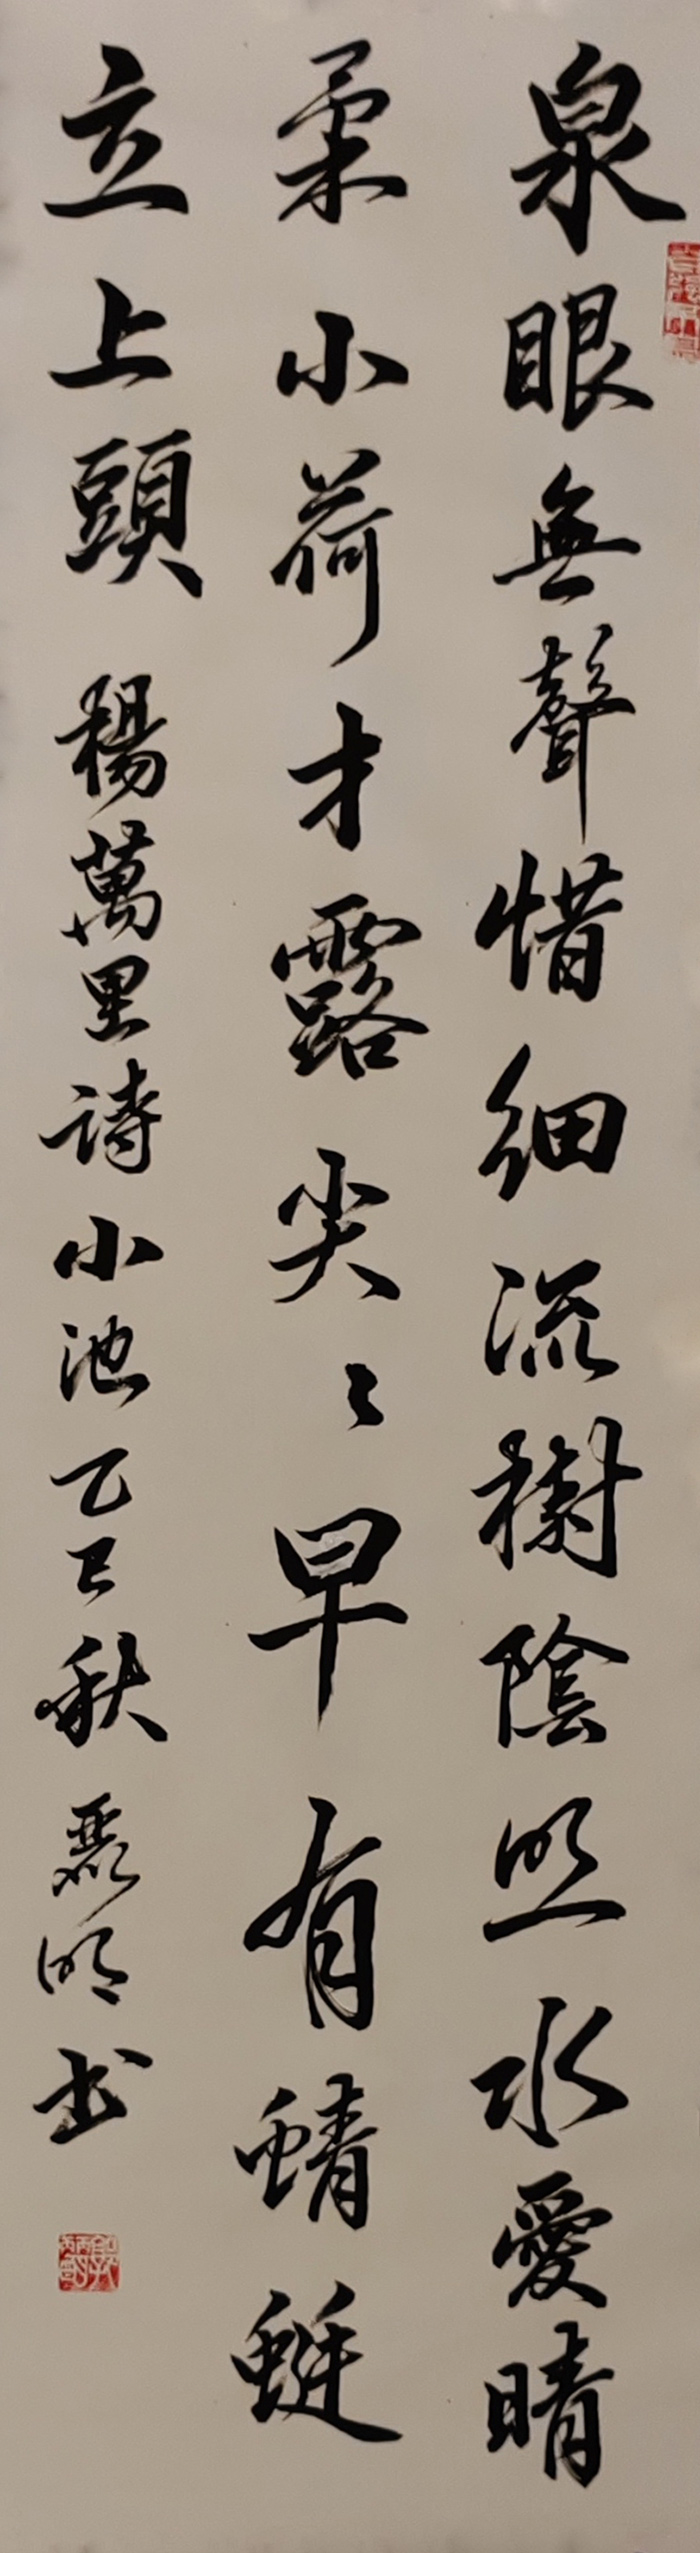 泉眼無聲惜细流樹陰照水愛晴
柔小荷才露尖〻早有蜻蜓
立上頭 楊萬里詩小池乙巳秋 麗明书